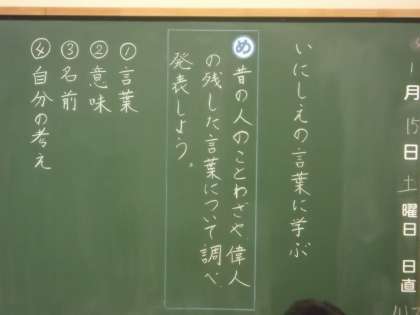 1月15日 土曜日 日直
いにしえの言葉に学ぶ
め 昔の人のことわざや偉人
の残した言葉について調べ
発表しよう。
①言葉
②意味
③名前
④自分の考え